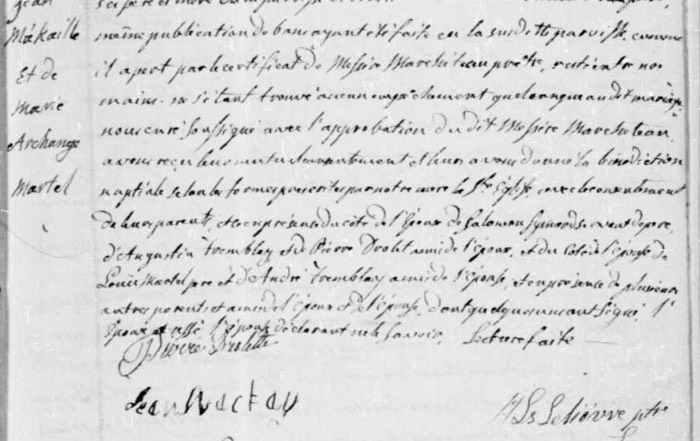 Jean
Makaille
Et de
Marie
Archange
Martel
même publication de bans ayant été faite en la susditte parroisse, comme
il apert par le certificat de Messire Marchêteau prêtre, resté entre nos
mains. ne s'étant trouvé aucun empêchement quelconque au dit mariage
nous curé soussigné avec l'approbation du dit Messire Marcheteau
avons reçu leur mutuel consentement et leur avons donné la bénédiction
nuptiale selon les formes prescrites par notre mere la Ste église, avec le consentement
de leurs parents, et ce en présence du côté de l'époux de Salomon
d'Augustin Tremblay et de Pierre Drolet amis de l'époux, et du coté de l'épouse de
Louis Martel pere et d'André Tremblay amis de l'épouse, et en presence de plusieurs
autres parents et amis de l'époux et de l'épouse, dont quelques uns ont signé. l'
époux et l'épouse déclarant ne le savoir. Lecture faite
Pierre Drolette
Jean Mackay
Ls Lelièvre ptre